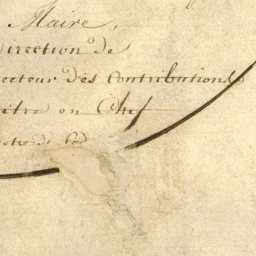 Maire,
irection de
ecteur des Contributions
itre en Chef